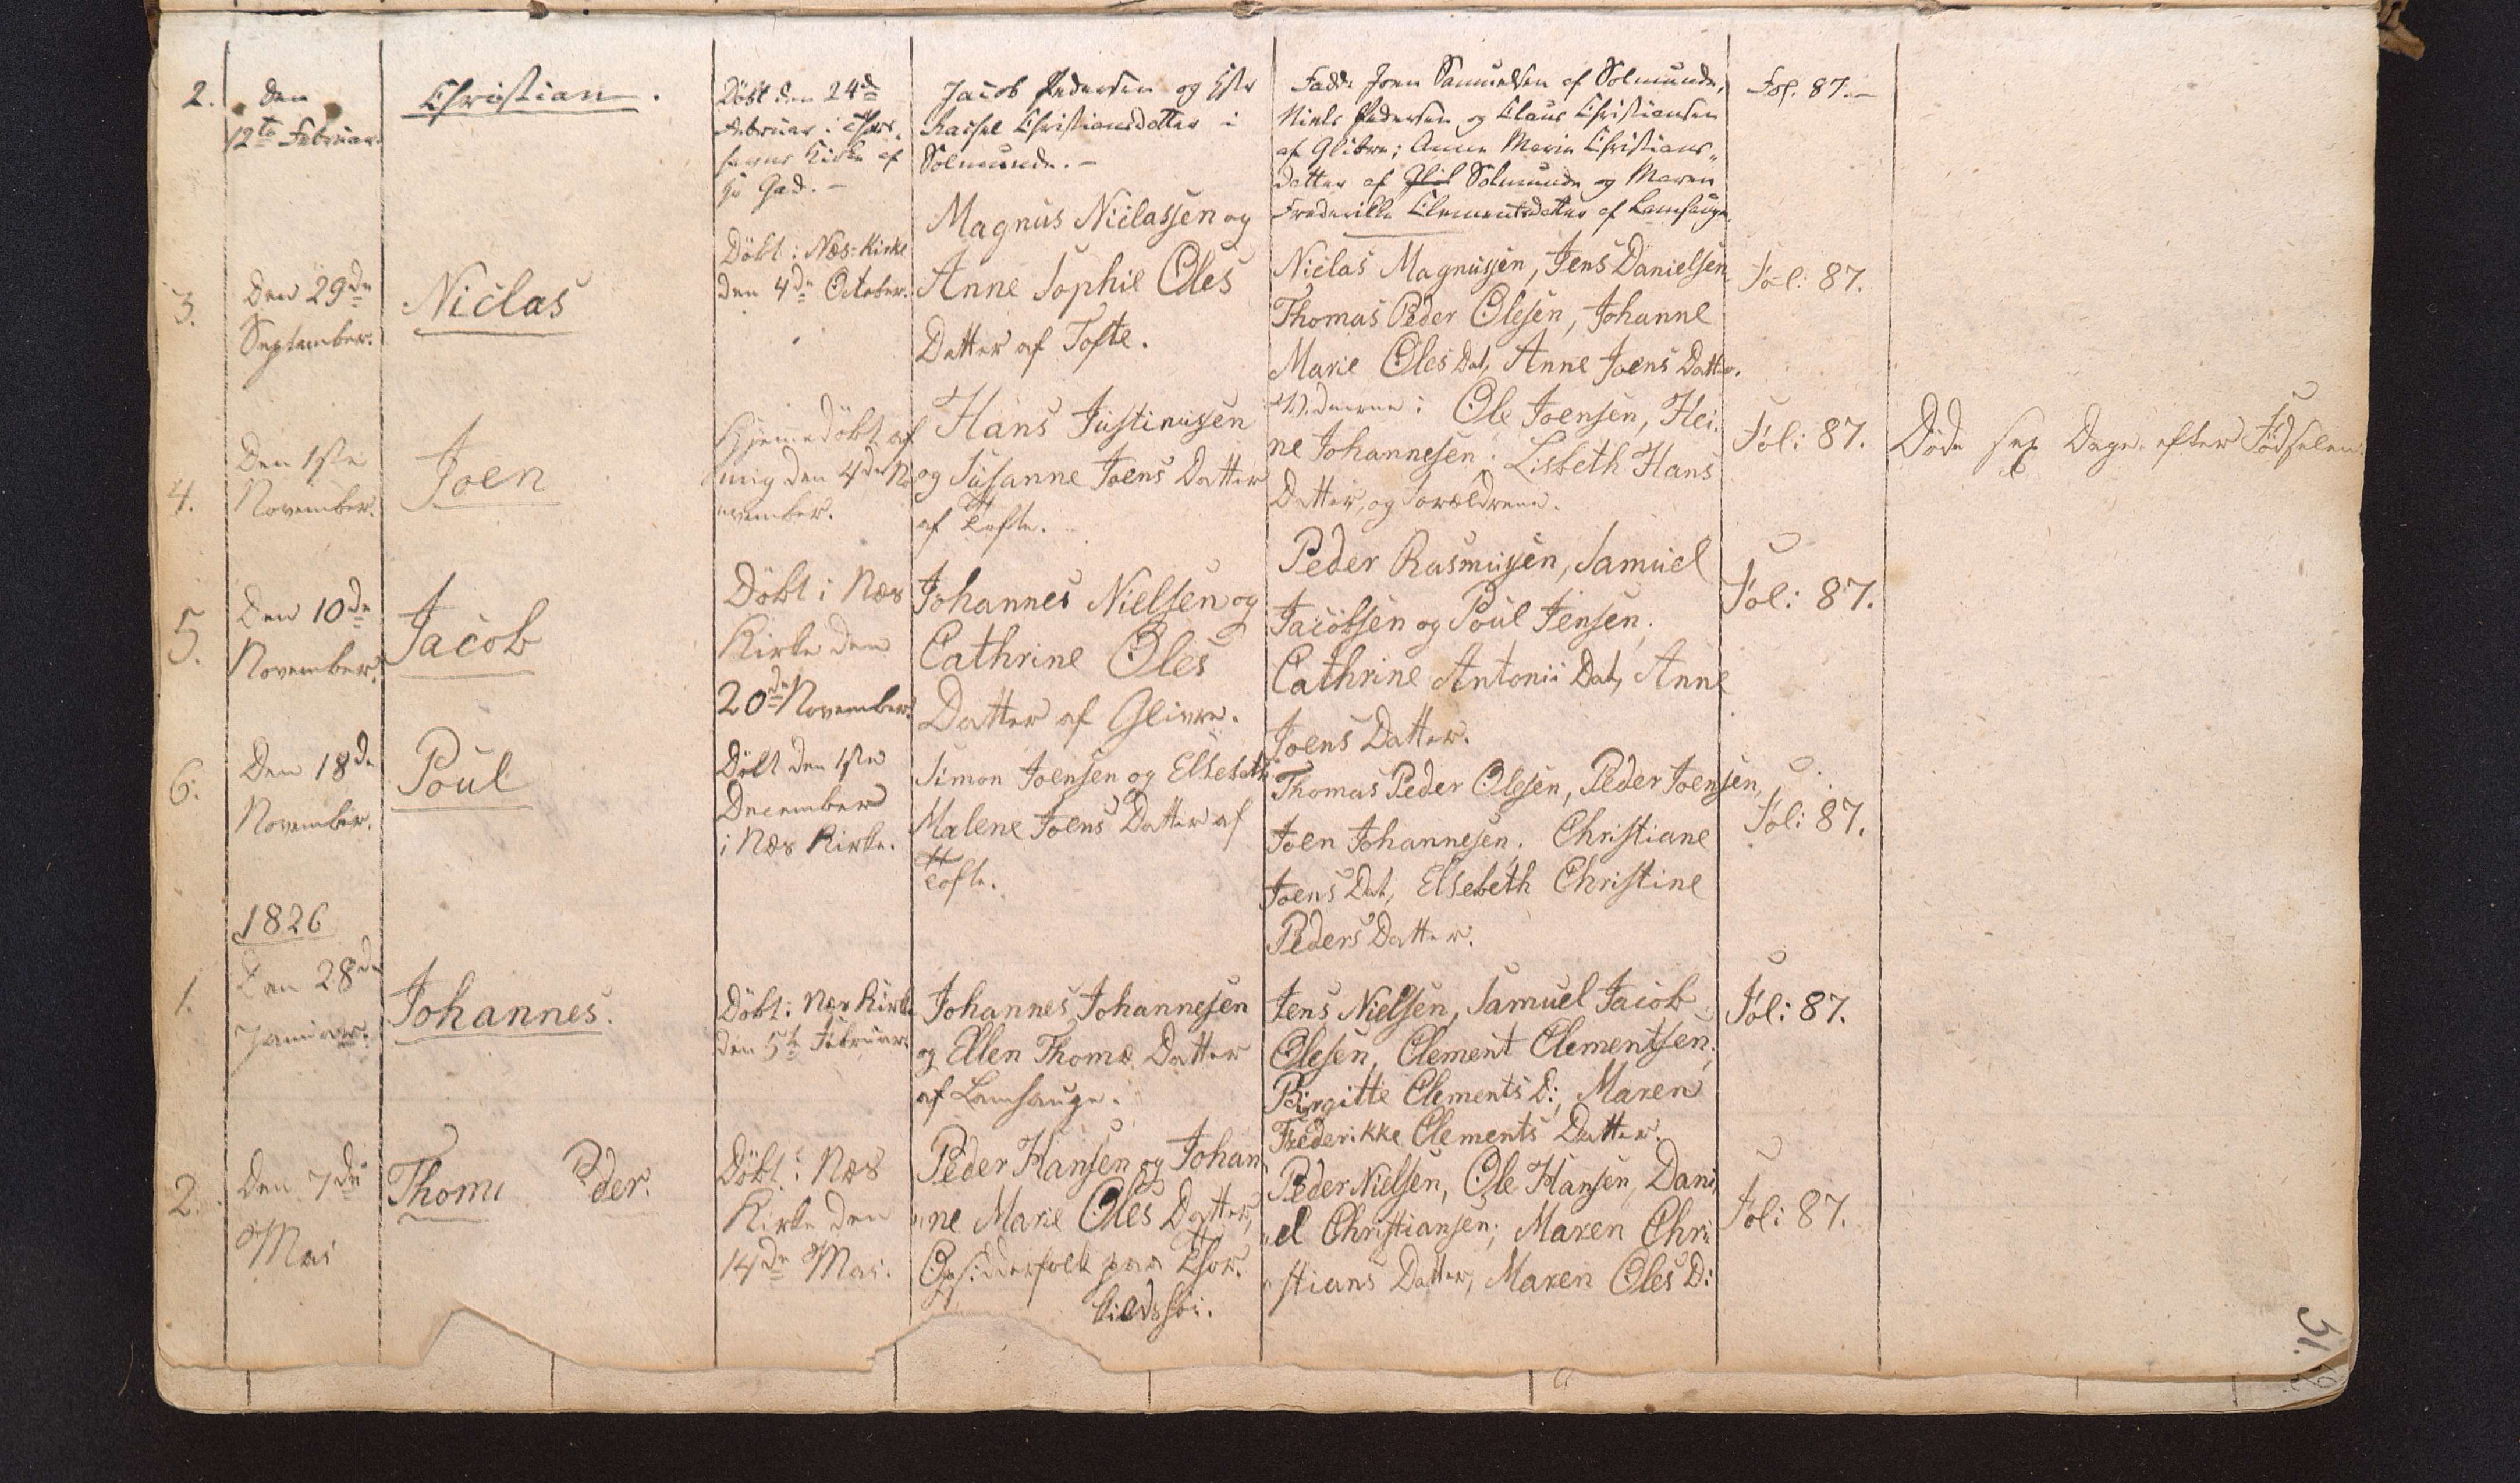 2.
den
12te Februar.
Christian.
Döbt den 24de
Februar i Thors-
havns Kirke af
Hr Gad. –
Jacob Pedersen og Hstr
Rachel Christiansdatter i
Solmunde. –
Fadd: Joen Samuelsen af Solmunde,
Niels Pedersen og Claus Christiansen
af Glibre; Anne Marie Christians„
datter af Glil Solmunde og Maren
Frederikke Clementsdatter af Lamhauge.
Fol. 87. –
3.
Den 29de
September.
Niclas
Döbt i Næs-Kirke
den 4de October.
Magnus Niclassen og
Anne Sophie Oles
Datter af Tofte.
Niclas Magnussen, Jens Danielsen,
Thomas Peder Olesen, Johanne
Marie Oles Dat, Anne Joens Datter.
Fol: 87.
4.
Den 1ste
November.
Joen
Hjemedöbt af
mig den 4de No
vember.
Hans Justinussen
og Susanne Joens Datter
af Tofte.
Vidnerne: Ole Joensen, Hei-
ne Johannesen. Lisbeth Hans
Datter, og Forældrene.
Fol: 87.
Döde sex Dage efter Födselen.
5.
Den 10de
November.
Jacob
Döbt i Næs
Kirke den
20de November.
Johannes Nielsen og
Cathrine Oles
Datter af Glivre.
Peder Rasmussen, Samuel
Jacobsen og Poul Jensen.
Cathrine Antonii Dat, Anne
Joens Datter.
Fol: 87.
6.
Den 18de
November.
Poul
Döbt den 1ste
December
i Næs Kirke.
Simon Joensen og Elsebeth
Malene Joens Datter af
Tofte.
Thomas Peder Olesen, Peder Joensen,
Joen Johannesen. Christiane
Joens Dat, Elsebeth Christine
Peders Datter.
Fol: 87.
1826
1.
Den 28de
Januar.
Johannes.
Döbt i Næs Kirke
den 5te Februar.
Johannes Johannesen
og Ellen Thomæ Datter
af Lamhauge.
Jens Nielsen, Samuel Jacob
Olesen, Clement Clementsen;
Birgitte Clements D:, Maren
Frederikke Clements Datter.
Fol: 87.
2.
Den 7de
Mai
Thom Peder.
Döbt i Næs
Kirke den
14de Mai.
Peder Hansen og Johan
„ne Marie Oles Datter,
Opsidderfolk paa Thor-
kildshöi.
Peder Nielsen, Ole Hansen, Dani
„el Christiansen; Maren Chri
„stians Datter, Maren Oles D:
Fol: 87.
51.